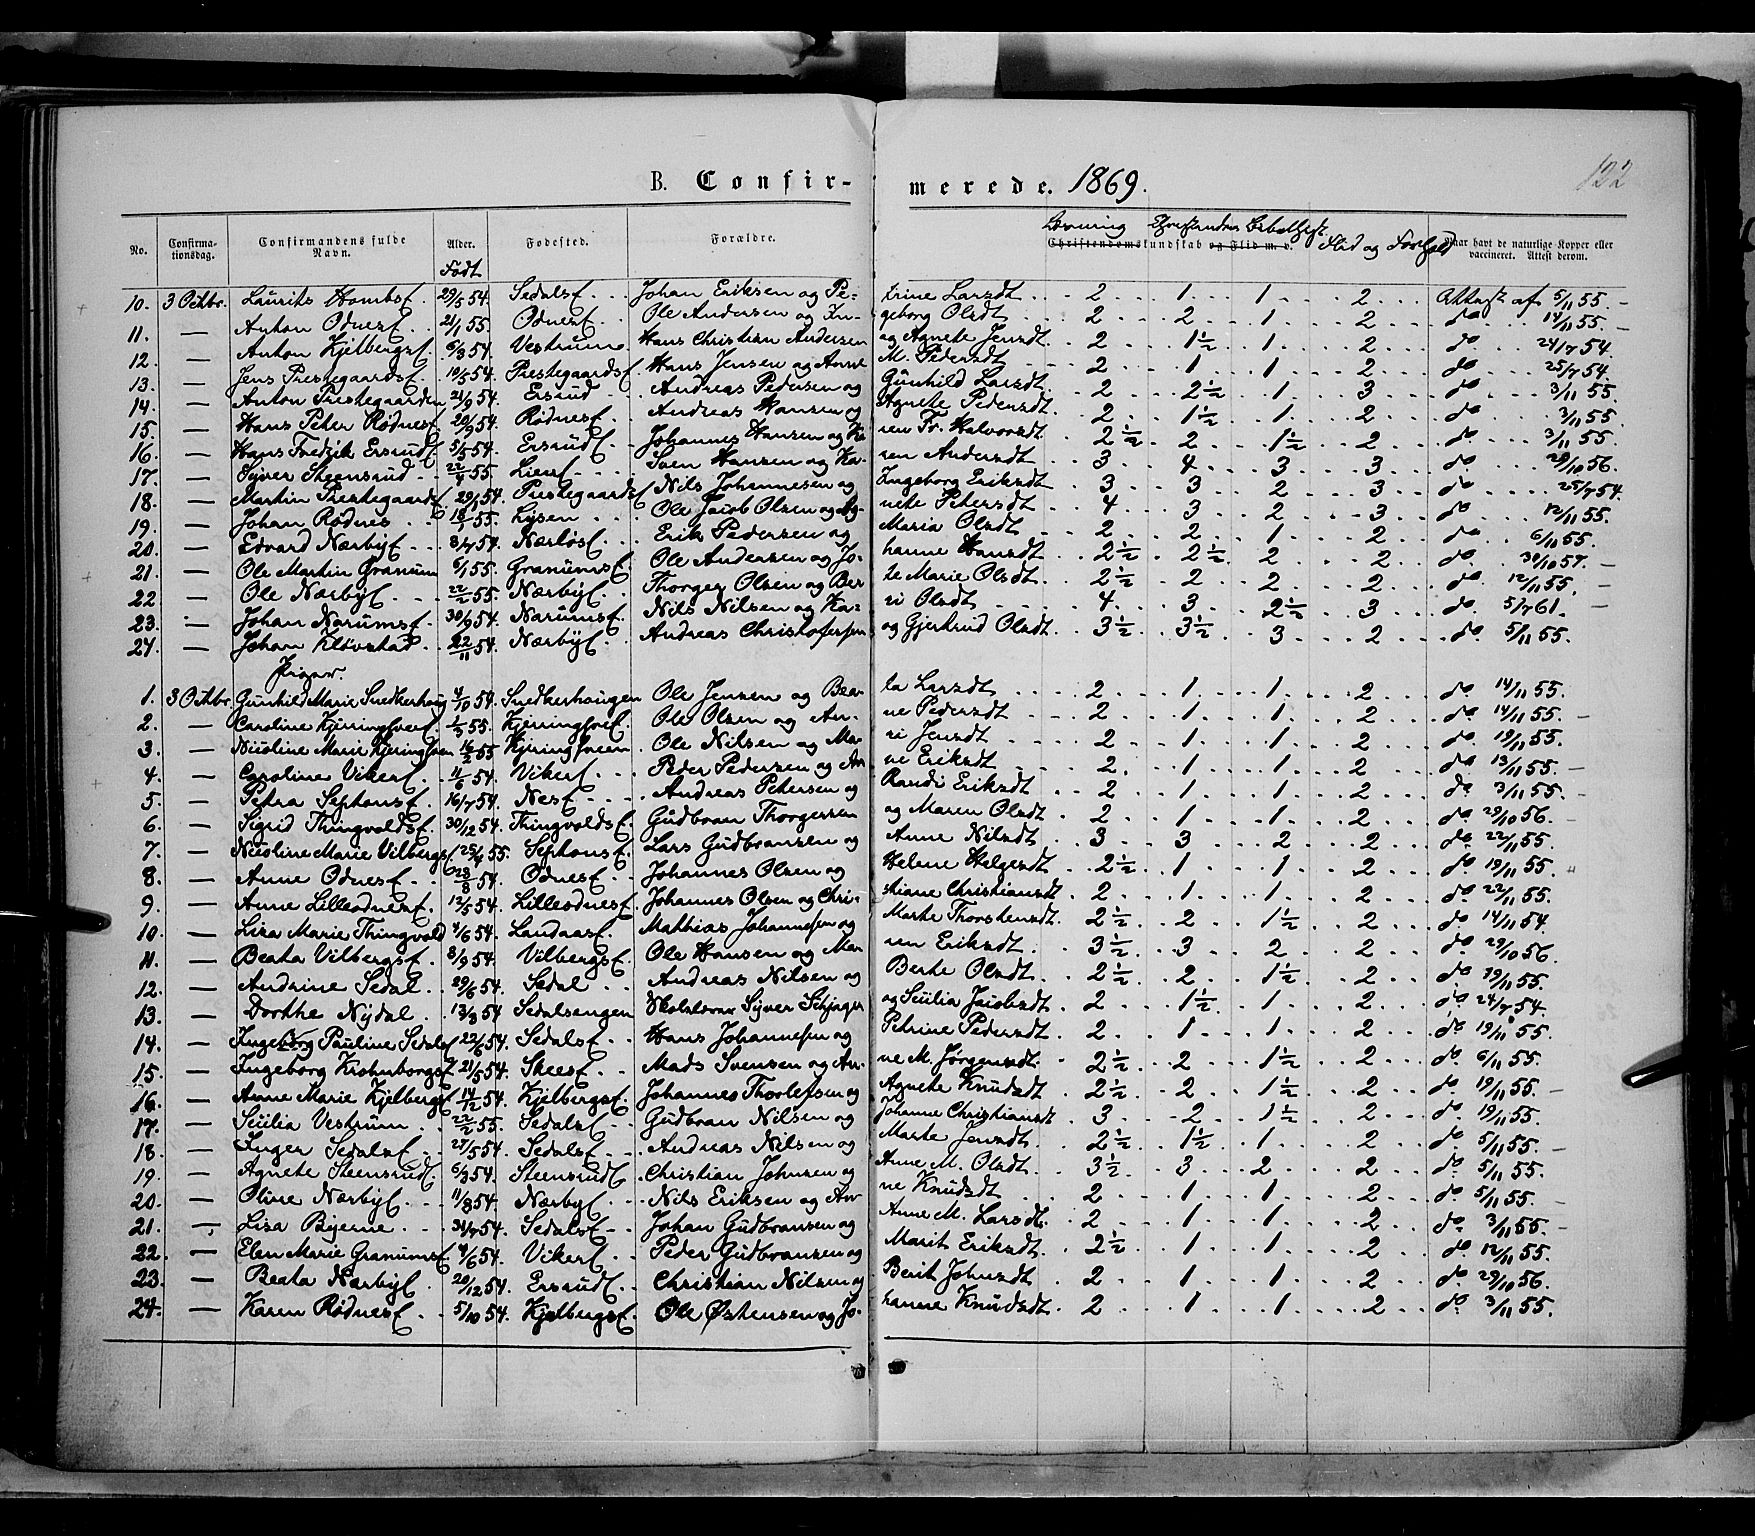 B. Confir-merede. 1869.
122
No. Confirma-tionsdag. Confirmandens fulde Navn. Alder. Født Fødested. Forældre. Læsning Christendomskundskab og Flid m. v. Flid og Forhold Naar havt de naturlige Kopper eller vaccineret. Attest derom.
10. 3 Octbr. Laurits Hombs. 29/5 54. Sedals. Johan Eriksen og Pe-trine Larsdt. 2 1 1 2 Attest af 5/11 55.
11. — Anton Odnes. 21/1 55. Odnes. Ole Andersen og In-geborg Olsdt. 2 2 1 2 do 14/11 55.
12. — Anton Kjelbergs. 6/3 54. Vestrum Hans Christian Andersen og Agnete Jensdt. 2 1½ 1 2 do 24/7 54.
13. — Jens Prestegaards. 10/5 54. Prestegaards. Hans Jensen og Anne M. Pedersdt. 2 1 1 2 do 25/7 54.
14. — Anton Prestegaarden 21/9 54. Ersrud Andreas Pedersen og Gunhild Larsdt. 2 2½ 1 3 do 3/11 55.
15. — Hans Peter Rødnes. 20/9 54. Rødnes. Andreas Hansen og Agnete Pedersdt. 2 1½ 1 2 do 3/11 55.
16. — Hans Fredrik Ersrud. 5/5 54. Ersrud. Johannes Hansen og Ka-ren Fr. Halvorsdt. 2½ 2 1½ 2 do 3/11 55.
17. — Syver Steensrud 22/4 55. Lien. Sven Hansen og Ka-ren Andersdt. 3 4 3 3 do 29/10 56.
18. — Martin Prestegaards. 29/1 54. Prestegaards. Nils Johannesen og Ingeborg Eriksdt. 3 3 2 3 do 25/7 54.
19. — Johan Rødnes 18/1 55. Lysen Ole Jacob Olsen og Ag-nete Petersdt. 4 3 2 3 do 12/11 55.
20. — Edvard Nærby. 8/7 54. Nærløs. Erik Pedersen og Maria Olsdt. 2 2 1 2 do 6/11 55.
21. — Ole Martin Granum 6/1 55. Granums. Ole Andersen og Jo-hanne Hansdt. 2½ 2½ 2 2 do 30/10 57.
22. — Ole Nærby. 22/2 55. Nærby. Thorger Olsen og Ber-te Marie Olsdt. 2½ 2 2 2 do 12/11 55.
23. — Johan Narums. 30/9 54. Narums. Nils Nilsen og Ka-ri Olsdt. 4 3 2½ 3 do 5/7 61.
24. — Johan Kløvstad 22/11 54. Nærby. Andreas Christofersen og Gjertrud Olsdt. 3½ 3½ 3 2 do 5/11 55.
Piger.
1. 3 Octbr. Gunhild Marie Snedkerhaug 4/10 54. Snedkerhaugen Ole Jensen og Bea-ta Larsdt. 2 1 1 2 do 14/11 55.
2. — Caroline Kjeringsvee. 1/5 55. Kjeringsvee. Ole Olsen og An-ne Pedersdt. 2 1 1 2 do 14/11 55.
3. — Nicoline Marie Kjeringsveen 16/2 55 Kjeringsveen Ole Nilsen og Ma-ri Jensdt. 2 1 1 2 do 19/11 55.
4. — Caroline Viker. 11/6 54. Viker. Peder Pedersen og An-ne Eriksdt. 2 1 1 2 do 13/11 55.
5. — Petra Sephons. 16/7 54. Nes. Andreas Petersen og Randi Eriksdt. 2 1 1 2 do 3/11 55.
6. — Sigrid Thingvolds. 30/12 54. Thingvolds. Gudbran Thorgersen og Maren Olsdt. 2 1 1 2 do 29/10 56.
7. — Nicoline Marie Vilbergs. 25/4 55. Sephons. Lars Gudbransen og Anne Nilsdt. 3 3 2 2 do 22/11 55.
8. — Anne Odnes. 23/8 54. Odnes. Johannes Olsen og Helene Helgesdt. 2½ 1 1 2 do 19/11 55.
9. — Anne Lilleodnes. 12/5 54. Lilleodnes. Johannes Olsen og Chri-stiane Christiansdt. 2 1 1 2 do 22/11 55.
10. — Lisa Marie Thingvold 4/6 54. Landaas. Mathias Johannesen og Marte Thorstensdt. 2½ 2 1½ 2 do 14/11 54.
11. — Beata Vilbergs. 8/9 54. Vilbergs. Ole Hansen og Ma-ren Eriksdt. 3½ 3 2 2 do 29/10 56.
12. — Andrine Sedal 29/6 54. Sedal Andreas Nilsen og Berte Olsdt. 2½ 2 1½ 2 do 19/11 55.
13. — Dorthe Nydal. 13/8 54. Sedalsengen Skolelærer Syver Schjager og Cicilia Jacobsdt. 2 1½ 1 2 do 24/7 54.
14. — Ingeborg Pauline Sedals. 22/6 54. Sedals. Hans Johannesen og Petrine Pedersdt. 2 1 1 2 do 19/11 55.
15. — Ingeborg Krohnborgs. 21/5 54. Skees. Mads Svensen og An-ne M. Jørgensdt. 2½ 2 1½ 2 do 6/11 55.
16. — Anne Marie Kjelbergs. 14/12 54. Kjelbergs. Johannes Thorlefsen og Agnete Knudsdt. 2½ 2 1½ 2 do 19/11 55.
17. — Cicilia Vestrum 22/2 55. Sedals. Gudbran Nilsen og Johanne Christiansdt. 3 2 1½ 2 do 19/11 55.
18. — Inger Sedals. 27/5 54. Sedals. Andreas Nilsen og Marte Jensdt. 2½ 1½ 1 2 do 5/11 55.
19. — Agnete Steensrud. 6/3 54. Steensrud. Christian Johnsen og Anne M. Olsdt. 3½ 3 2 2 do 5/11 55.
20. — Oline Nærby. 11/8 54. Nærby. Nils Eriksen og An-ne Knudsdt. 2 1 1 2 do 5/11 55.
21. — Lisa Bjerne 31/7 54. Sedals. Johan Gudbransen og Anne M. Larsdt. 2 1 1 2 do 3/11 55.
22. — Elen Marie Granums. 4/6 54. Viker. Peder Gudbransen og Marit Eriksdt. 2½ 1 1 2 do 12/11 55.
23. — Beata Nærby. 20/12 54. Ersrud. Christian Nilsen og Berit Johnsdt. 2 1 1 2 do 29/10 56.
24. — Karen Rødnes. 5/10 54. Kjelbergs. Ole Østensen og Jo-hanne Knudsdt. 2 1 1 2 do 3/11 55.